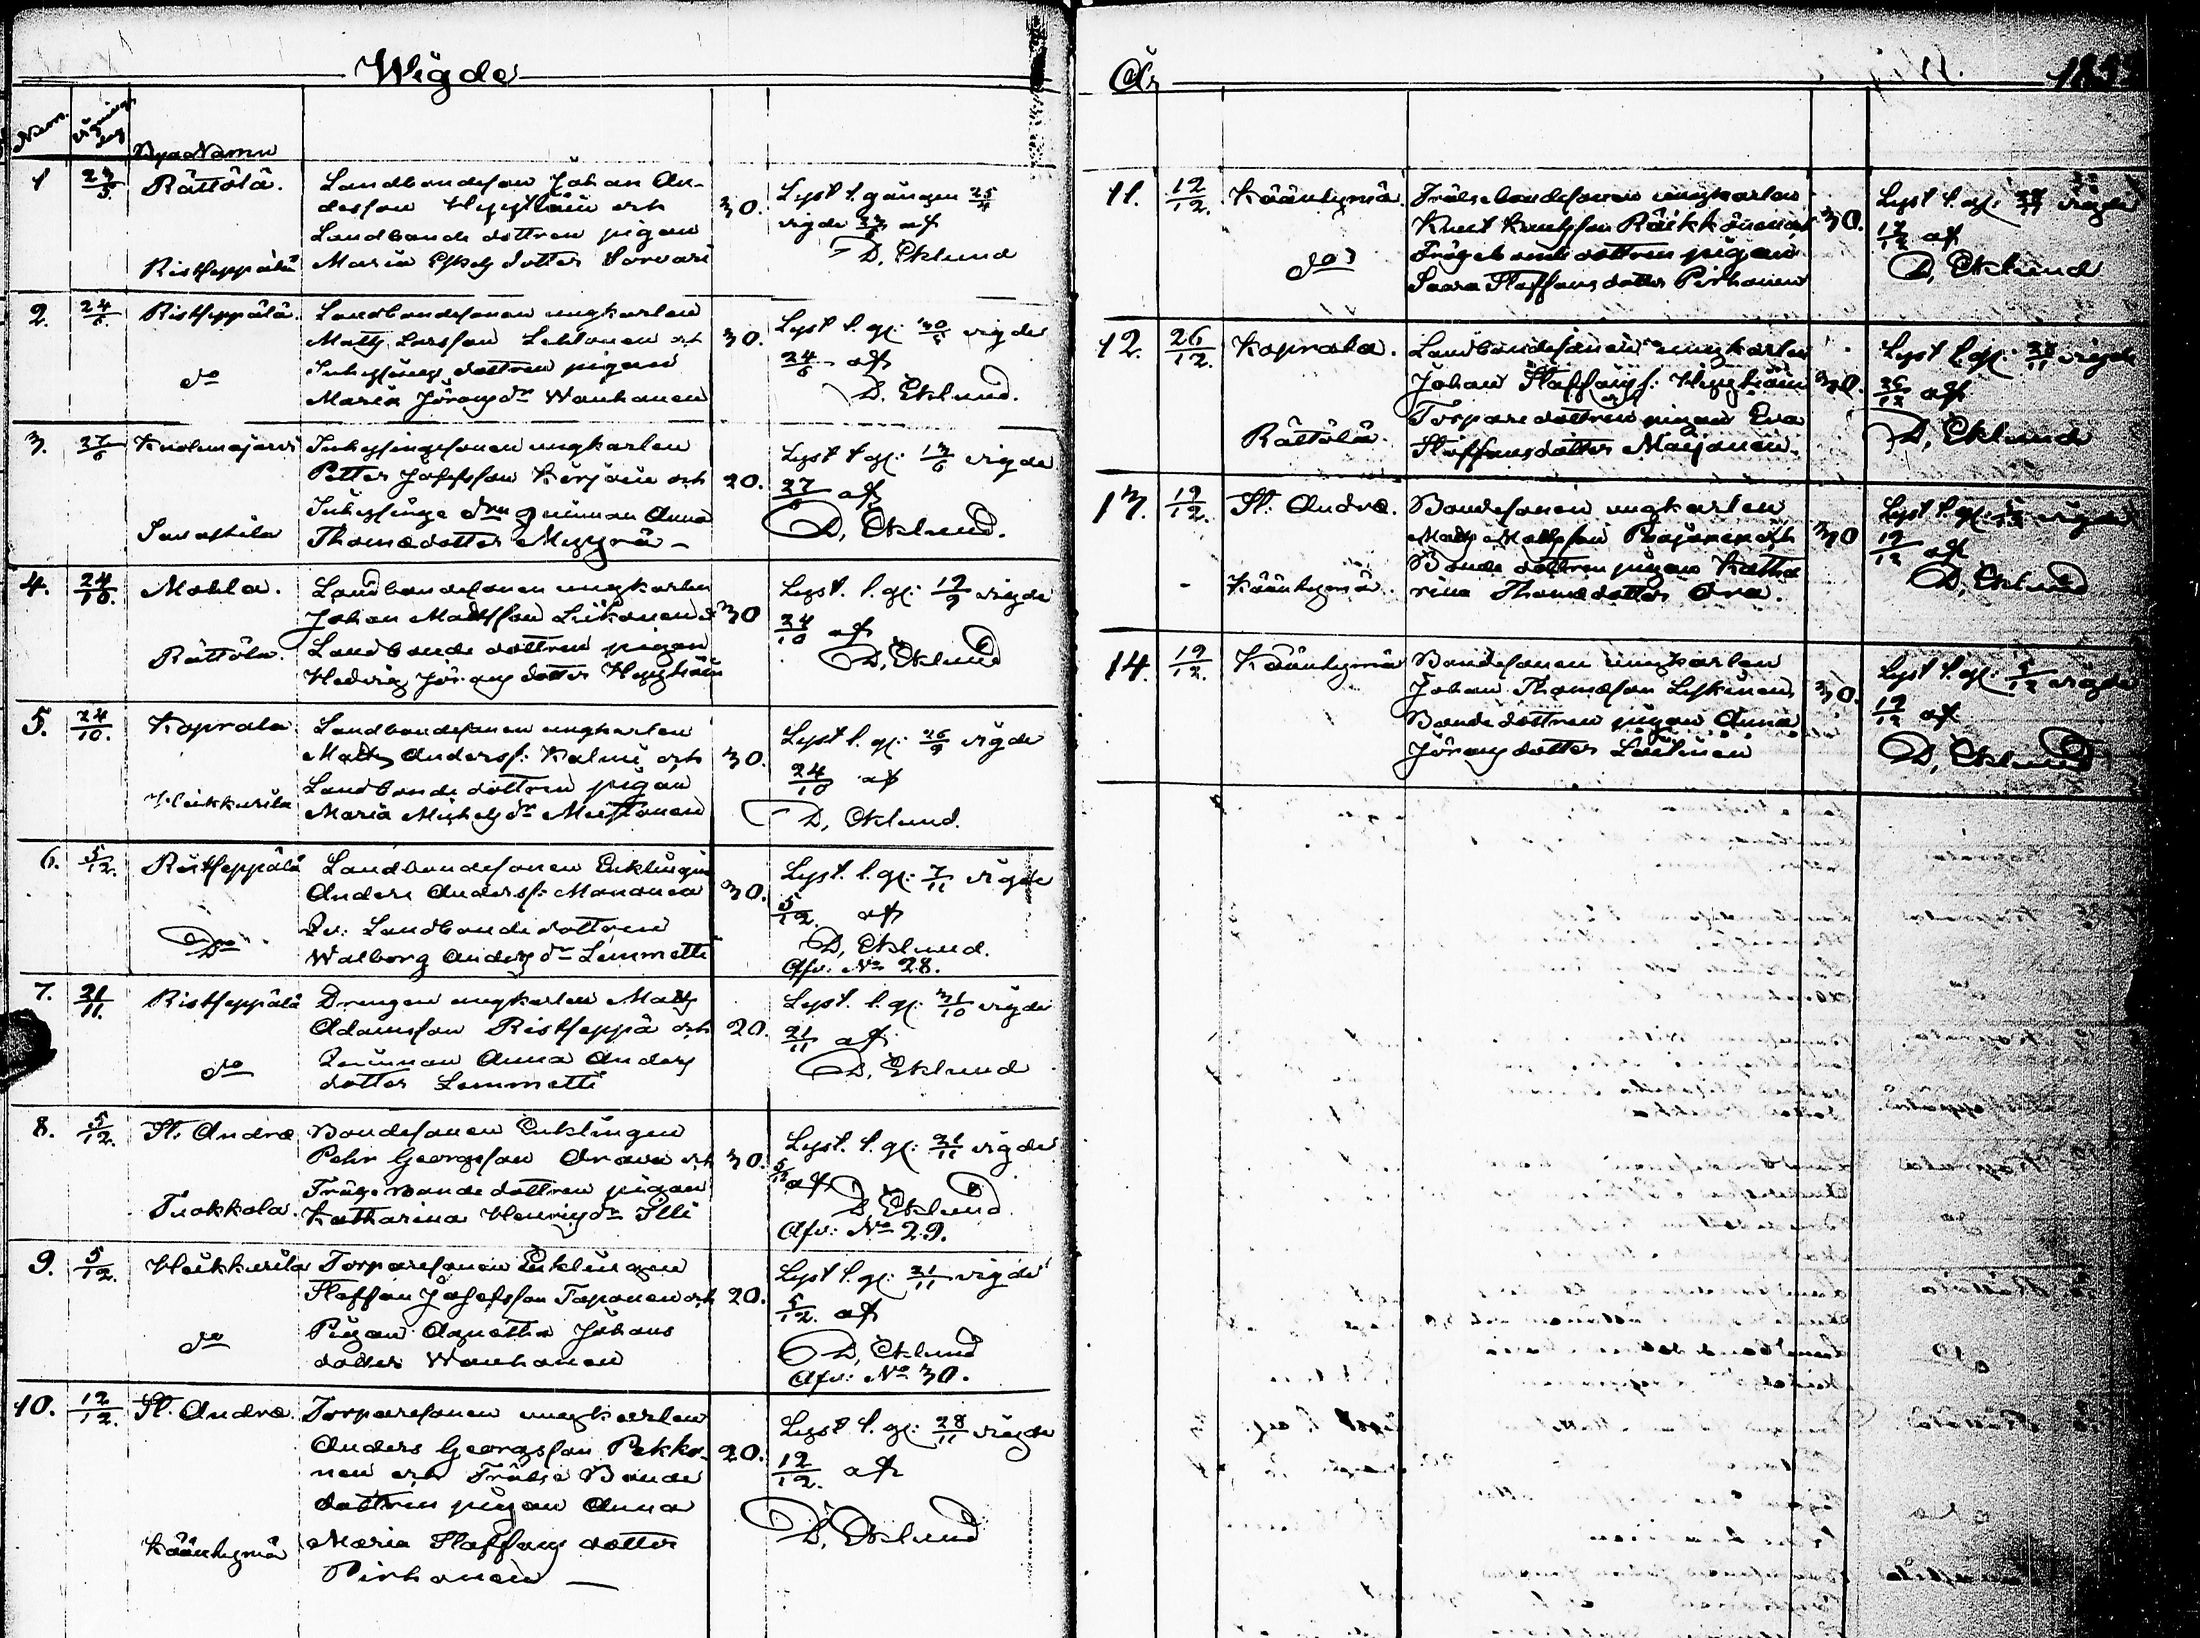 Wigde
Num. Vignings dag Bya Namn
1 27/5 Rättölä. Landbondeson Johan An-
dersson Hyytiäin och
Landbonde dottren pigan
Ristseppälä Maria Eskelsdotter Sorvari
30. Lyst 1. gången 25/4
vigde 27/5 af
D. Eklund
2. 24/6 Ristseppälä. Landbondesonen ungkarlen
Matts Larsson Lehtonen och
Inhysings dottren pigan
do Maria Jöransdr Wanhanen
30. Lyst 1. g: 30/5 vigde
24/6 af
D. Eklund.
3. 27/6 Kuolemajärvi Inhysingesonen ungkarlen
Petter Josefsson Kärjäin och
Inhysinge drn qvinnan Anna
Savastila Thomædotter Myyrä –
20. Lyst 1 g: 13/6 vigde
27/6 af
D. Eklund.
4. 24/10. Makla. Landbondesonen ungkarlen
Johan Mattsson Liikanen o
Rättölä. Landbonde dottren pigan
Hedvig Jörans dotter Hyytiäin
30 Lyst. 1. g: 19/9 vigde
24/10 af
D. Eklund
5. 24/10. Koprala Landbondesonen ungkarlen
Matts Anderss: Kalmi och
Landbonde dottren pigan
Heikkurila Maria Michelsdr Mustonen
30. Lyst 1. g: 26/9 vigde
24/10 af
D. Eklund.
6. 5/12. Ristseppälä Landbondesonen Enklingen
Anders Anderss: Mananen
Qv: Landbonde dottren
Do Walborg Andersdr Lemmetti
30. Lyst. 1. g: 7/11 vigde
5/12 af
D. Eklund.
Afv: No 28.
7. 21/11. Ristseppälä Drengen ungkarlen Matts
Adamsson Ristseppä och
Qvinnan Anna Anders
do dotter Lemmetti
20. Lyst. 1. g: 31/10 vigde
21/11 af
D. Eklund
8. 5/12. St. Andræ Bondesonen Enklingen
Pehr Georgsson Orava och
Frälse Bonde dottren pigan
Tuokkola. Katharina Henrics dr Illi
30. Lyst. 1. g: 21/11 vigde
5/12 af
D. Eklund.
Afv: No 29.
9. 5/12. Heikkurila Torparesonen Enklingen
Staffan Josefsson Taponen och
Pigan Agnetha Johans
do dotter Wanhanen
20. Lyst 1. g: 21/11 vigde
5/12. af
D. Eklund
Afv: No 30.
10. 12/12. St. Andræ. Torparesonen ungkarlen
Anders Georgsson Pekko-
nen och Frälse Bonde
dottren pigan Anna
Kääntymä Maria Staffans dotter
Pirhonen —
20. Lyst 1. g: 28/11 vigde
12/12. af
D. Eklund
År 185
11. 12/12. Kääntymä Frälsebondesonen ungkarlen
Knut Knutsson Räikkönen och
Frälsebonde dottren pigan
do Saara Staffans dotter Pirhonen
30. Lyst 1. g: 28/11 vigde
12/12 af
D. Eklund
12. 26/12. Koprala. Landbondesonen ungkarlen
Johan Staffanss: Hyytiäin
och
Torpare dottren pigan Eva
Rättölä. Staffansdotter Maijanen.
30. Lyst 1. g: 28/11 vigde
26/12 af
D. Eklund
13. 19/12. St. Andræ. Bondesonen ungkarlen
Matts Mattsson Pojonen och
Bonde dottren pigan Katha
Kääntymä. rina Thomædotter Orva.
30 Lyst 1. g: 5/12 vigde
19/12 af
D. Eklund
14. 19/12. Kääntymä Bondesonen ungkarlen
Johan Thomæson Lyskinen,
Bonde dottren pigan Anna
Jörans dotter Laitinen
30. Lyst 1. g: 5/12 vigde
19/12 af
D. Eklund